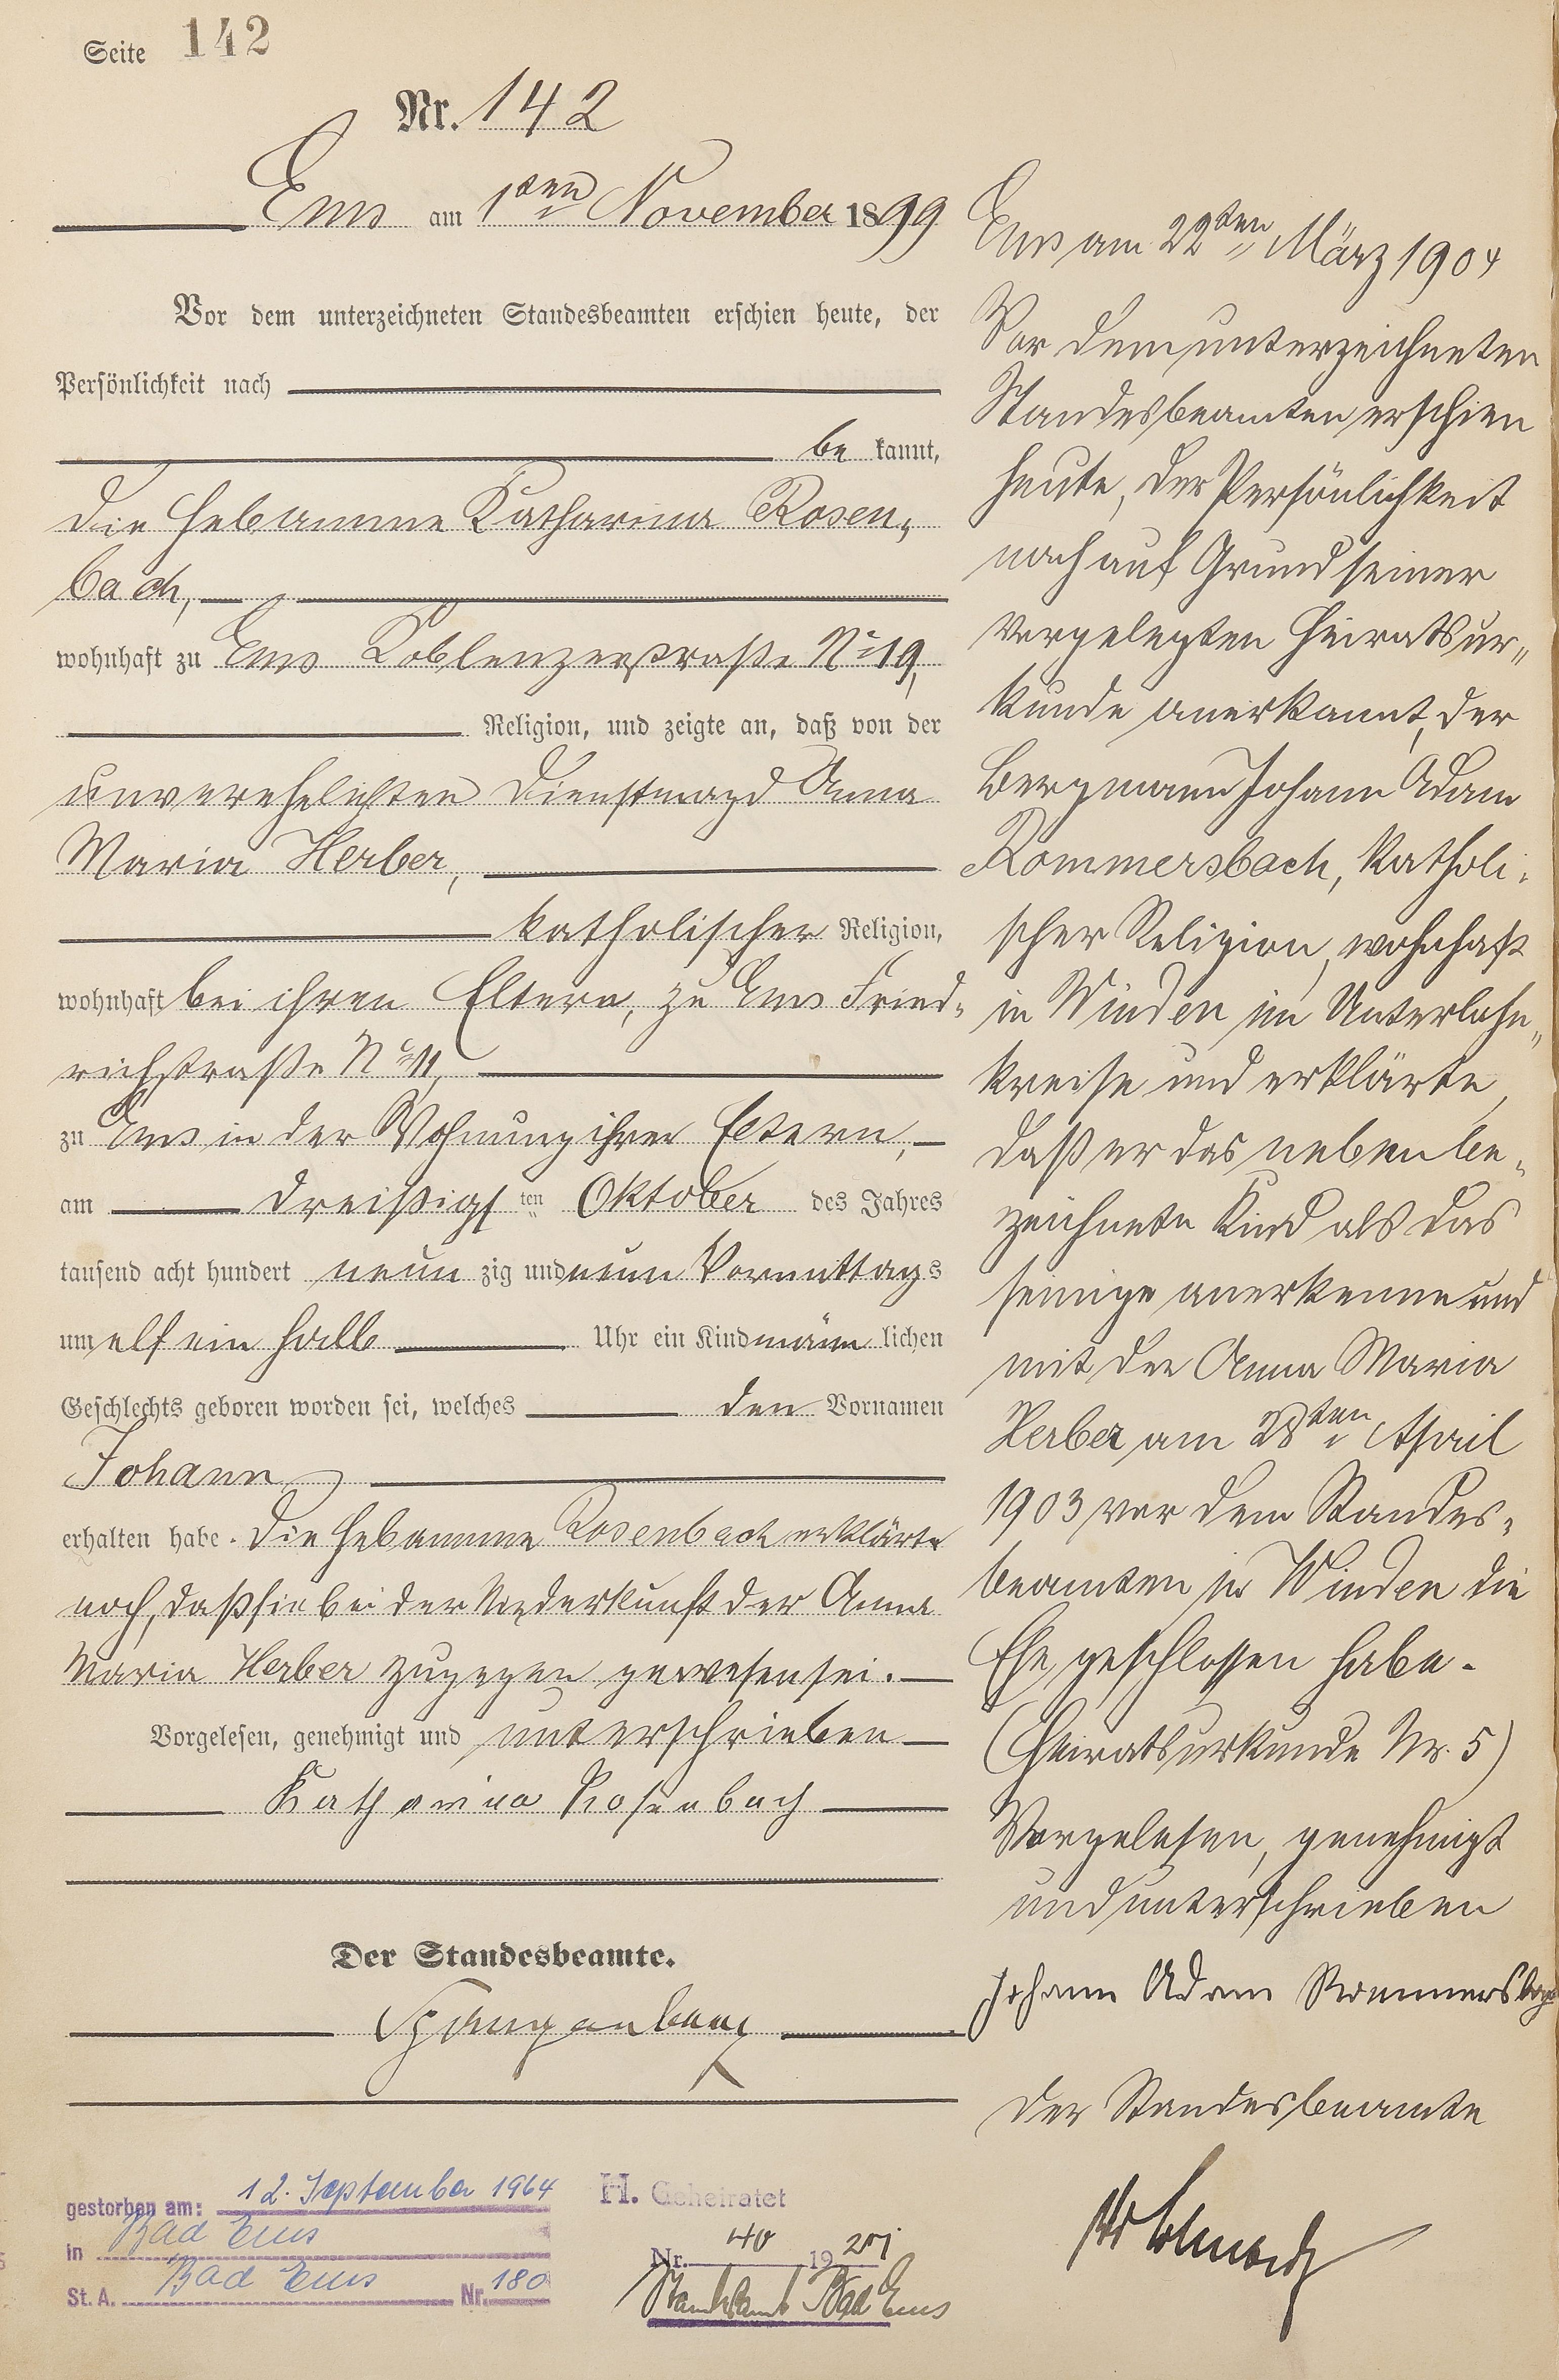 Seite 142
Nr. 142
Ems am 1ten November 1899
Vor dem unterzeichneten Standesbeamten erschien heute, der
Persönlichkeit nach
be kannt,
die Hebamme Katharina Rosen„
bach,
wohnhaft zu Ems Coblenzerstraße No 19,
Religion, und zeigte an, daß von der
unverehelichten Dienstmagd Anna
Maria Herber,
katholischer Religion,
wohnhaft bei ihren Eltern, zu Ems Fried„
richstraße No 11,
zu Ems in der Wohnung ihrer Eltern,
am dreißigsten Oktober des Jahres
tausend acht hundert neun zig und neun Vormittags
um elf ein halb Uhr ein Kind männ lichen
Geschlechts geboren worden sei, welches den Vornamen
Johann
erhalten habe. Die Hebamme Rosenbach erklärte
noch, daß sie bei der Niederkunft der Anna
Maria Herber zugegen gewesen sei.
Vorgelesen, genehmigt und unterschrieben
Katharina Rosenbach
Der Standesbeamte.
Spangenberg
gestorben am: 12. September 1964
in Bad Ems
St. A. Bad Ems Nr. 180
H. Geheiratet
Nr. 40 19
Standesamt Bad Ems
Ems am 22ten März 1904
Vor dem unterzeichneten
Standesbeamten erschien
heute, der Persönlichkeit
nach auf Grund seiner
vorgelegten Heiratsur„
kunde anerkannt, der
Bergmann Johann Adam
Rommersbach, katholi„
scher Religion, wohnhaft
in Winden im Unterlahn„
kreise und erklärte,
daß er das neben be„
zeichnete Kind als das
seinige anerkenne und
mit der Anna Maria
Herber am 28ten April
1903 vor dem Standes„
beamten in Winden die
Ehe geschlossen habe.
(Heiratsurkunde Nr. 5)
Vorgelesen, genehmigt
und unterschrieben
Johann Adam Rommersbach
Der Standesbeamte